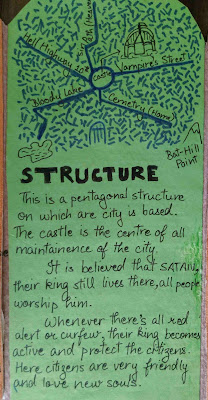 Hell Highway
Castle
Vampire's Street
Bloody Lake
Cemetry (Home)
Bat-Hill
Point
STRUCTURE
This is a pentagonal structure
on which are city is based.
The castle is the centre of all
maintainence of the city.
It is believed that SATAN,
their king still lives there, all people
worship him.
Whenever there's all red
alert or curfew, their king becomes
active and protect the citizens.
Here citizens are very friendly
and love new souls.